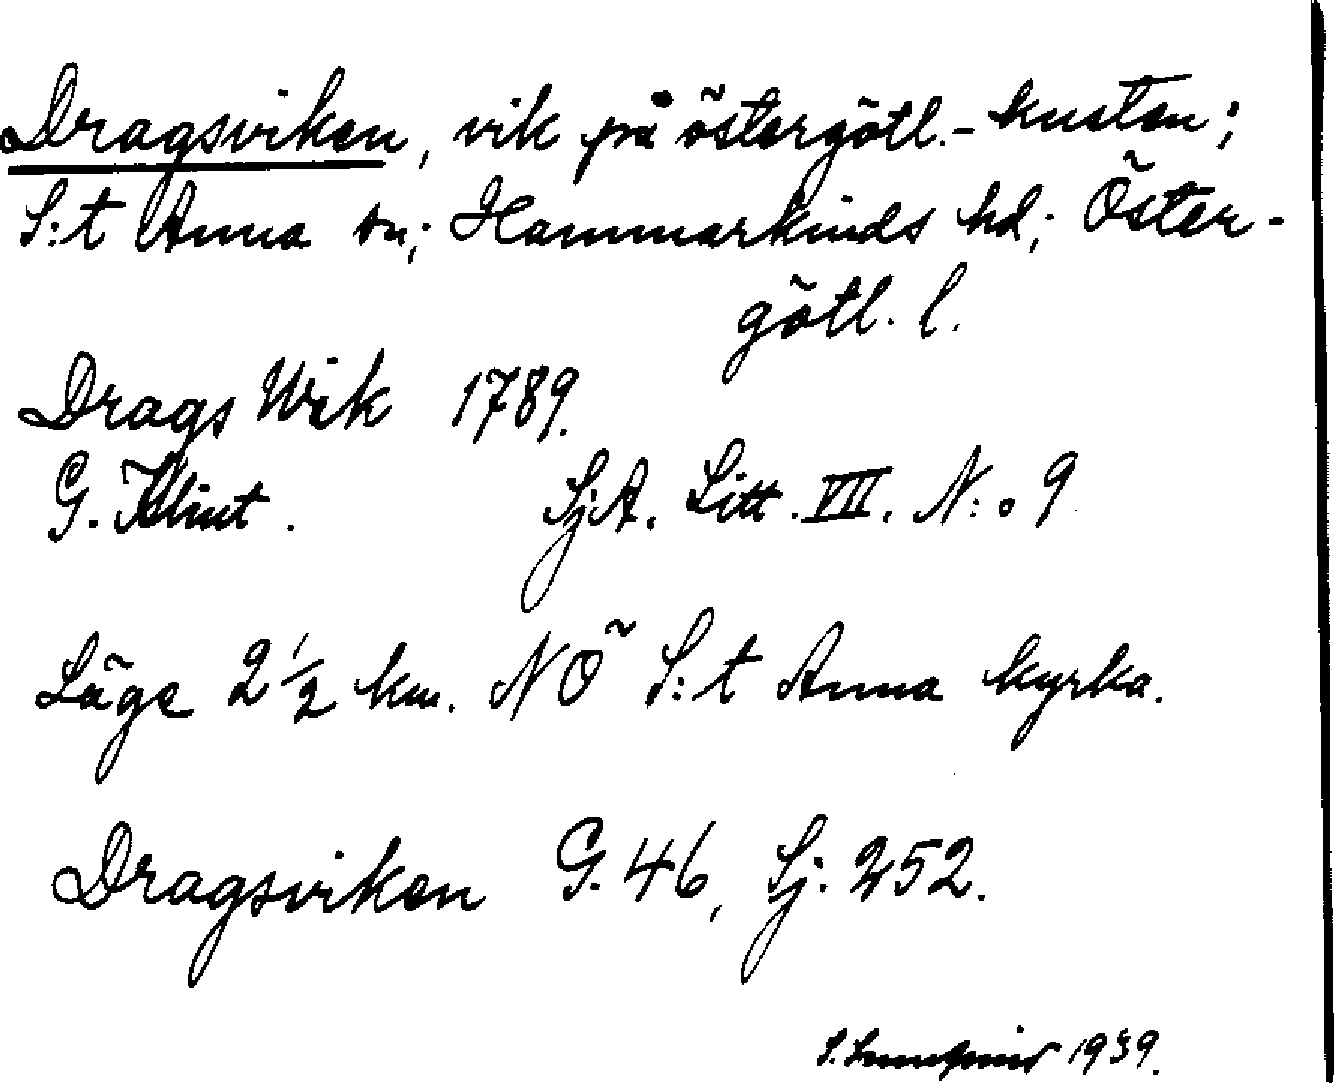 Dragsviken, vik på östergötl.-kusten;
S:t Anna sn; Hammarkinds hd; Öster-
götl. l.
Drags Wik 1789.
G. Klint. SjA. Litt. VII. N:o 9
Läge 2 1/2 km. NÖ S:t Anna kyrka.
Dragsviken G. 46, Sj. 252.
S. 1939.